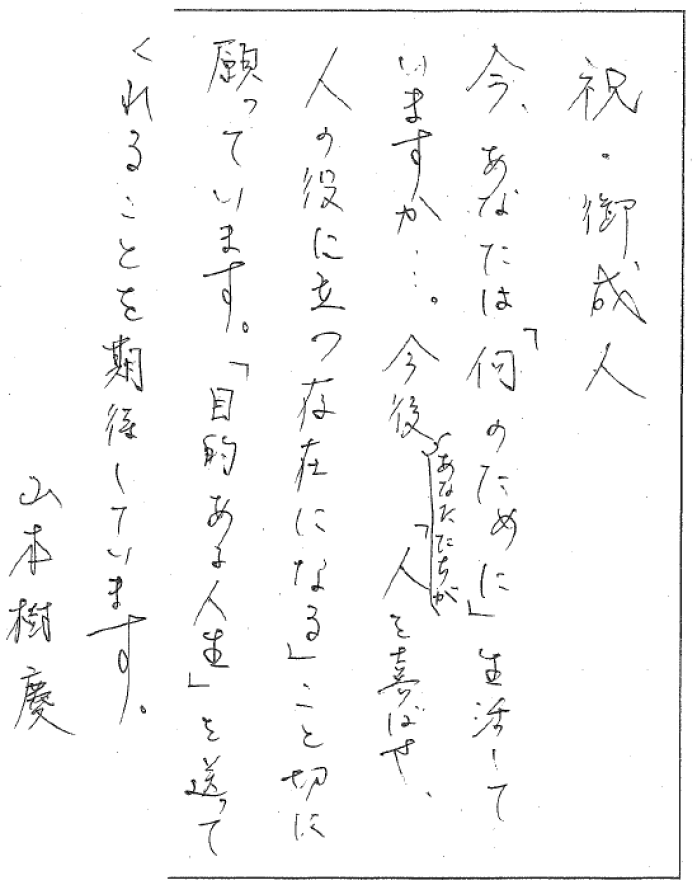 祝・御成人
今、あなたは「何のために」生活して
いますか…。今後、あなたたちが「人を喜ばせ、
人の役に立つ存在になる」こと切に
願っています。「目的ある人生」を送って
くれることを期待しています。
山本樹慶